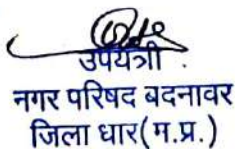 उपयंत्री .
नगर परिषद बदनावर
जिला धार(म.प्र.)